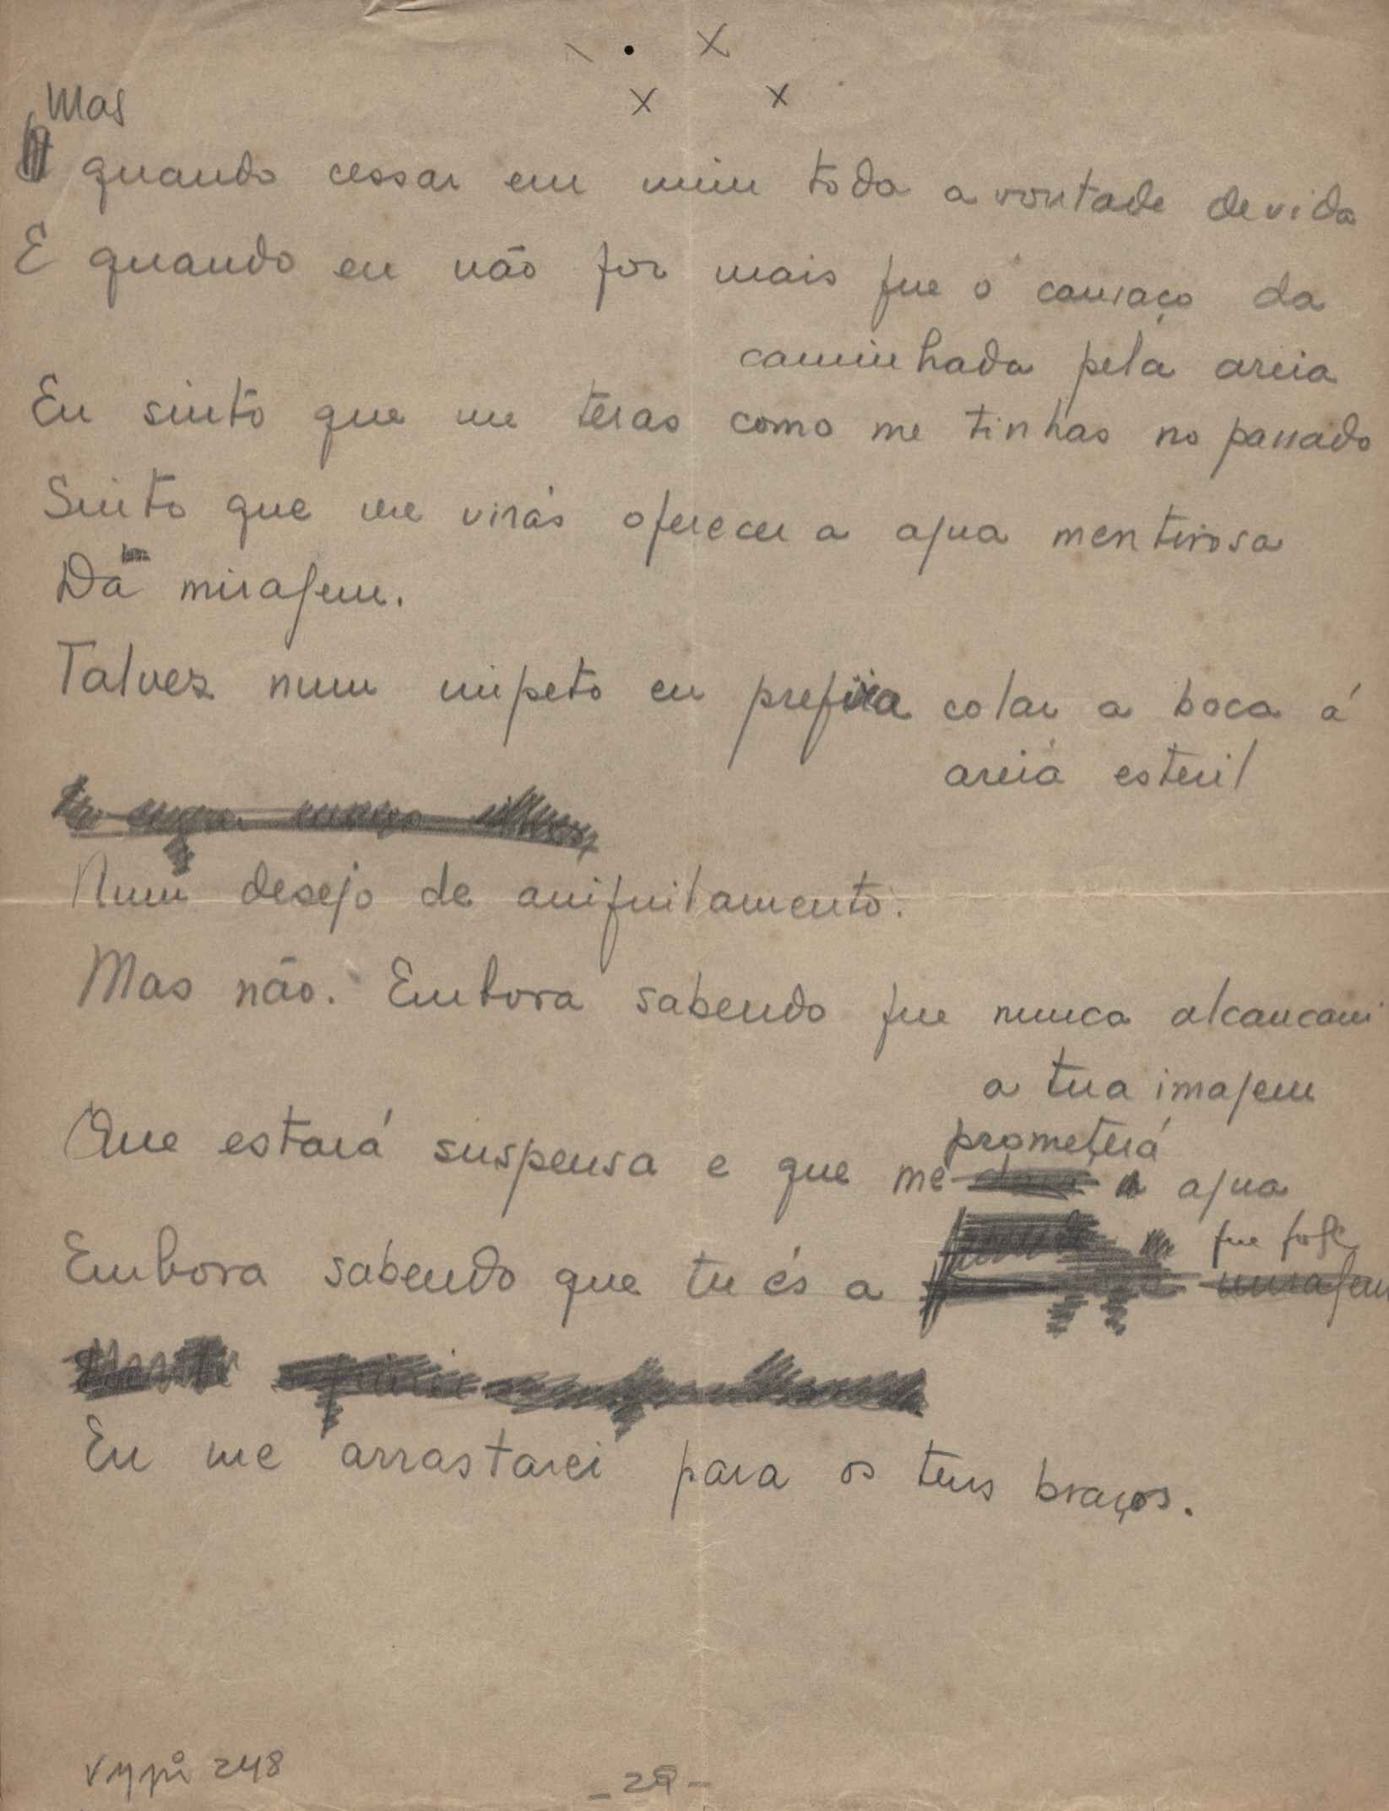 x
x x
Mas
quando cessar em mim toda a vontade de vida
E quando eu não for mais que o cansaço da
caminhada pela areia
Eu sinto que me terás como me tinhas no passado
Sinto que me virás oferecer a agua mentirosa
Da miragem.
Talvez num impeto eu prefira colar a boca á
areia esteril
Num desejo de aniquilamento.
Mas não. Embora sabendo que nunca alcançarei
a tua imagem
Que estará suspensa e que me prometerá agua
Embora sabendo que tu és a que foge
miragem
Eu me arrastarei para os teus braços.
248